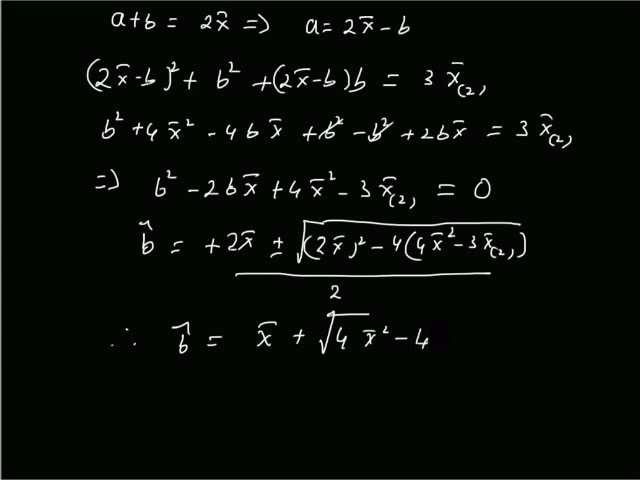 a+b = 2x̄ => a = 2x̄ - b
(2x̄-b)² + b² + (2x̄-b)b = 3 x̄₍₂₎
b² + 4x̄² - 4bx̄ + b² - b² + 2bx̄ = 3 x̄₍₂₎
=> b² - 2bx̄ + 4x̄² - 3x̄₍₂₎ = 0
b̂ = +2x̄ ± √((2x̄)² - 4(4x̄² - 3x̄₍₂₎))
2
∴ b̂ = x̄ + √4 x̄² - 4